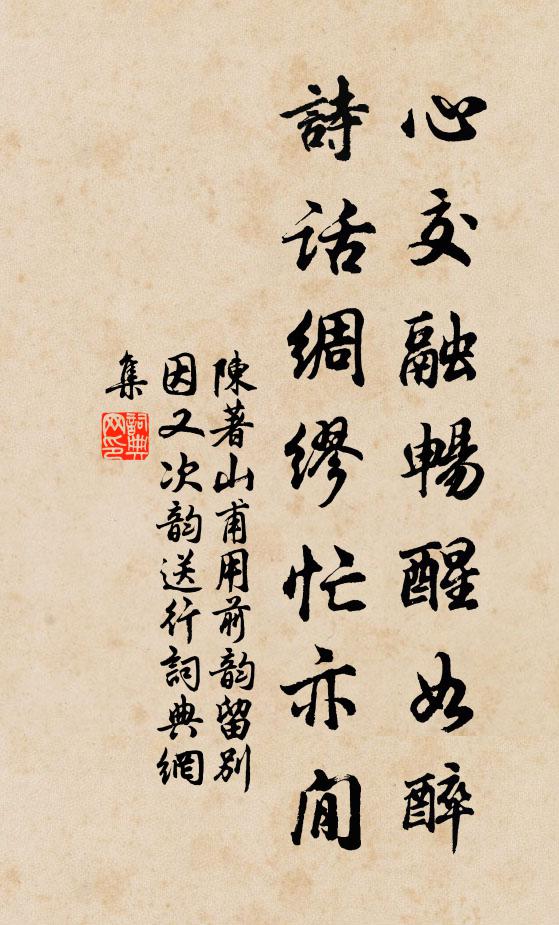 心交融暢醒如醉
詩话綢缪忙亦閒
陳著山甫用前韵留别
因又次韵送行詞典網
集
詞典
网印